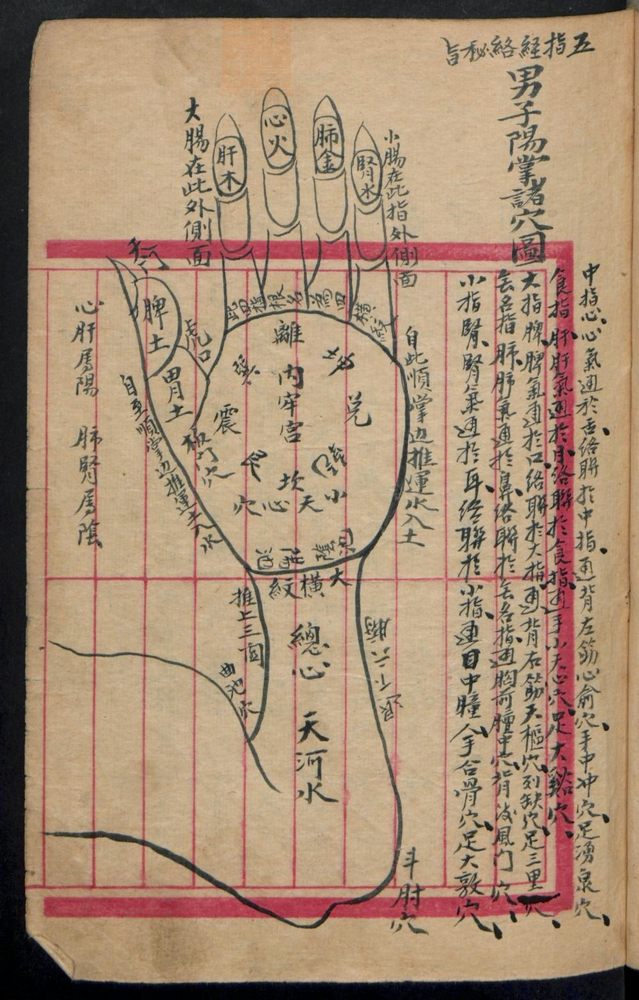 五指經絡秘旨
男子陽掌諸穴圖
中指心心氣通於舌絡聯於中指通背左筋心俞穴手中冲穴足湧泉穴
食指肝肝氣通於目絡聯於食指通手小天心穴足大谿穴
大指脾脾氣通於口絡聯於大指通背右筋天樞穴列缺穴足三里穴
無名指肺肺氣通於鼻絡聯於無名指通胸前膻中穴背後風門穴
小指腎腎氣通於耳絡聯於小指通目中瞳人手合骨穴足大敦穴
小腸在此指外側面
腎水
肺金
心火
肝木
大腸在此外側面
脾土
胃土
虎口
板门穴
離
兌
震
坎
内牢宫
小天心穴
自此順掌边推運水入土
自至順掌边推運土入水
大橫紋
推上三関
曲池穴
總心
天河水
斗肘穴
心肝属陽 肺腎属陰